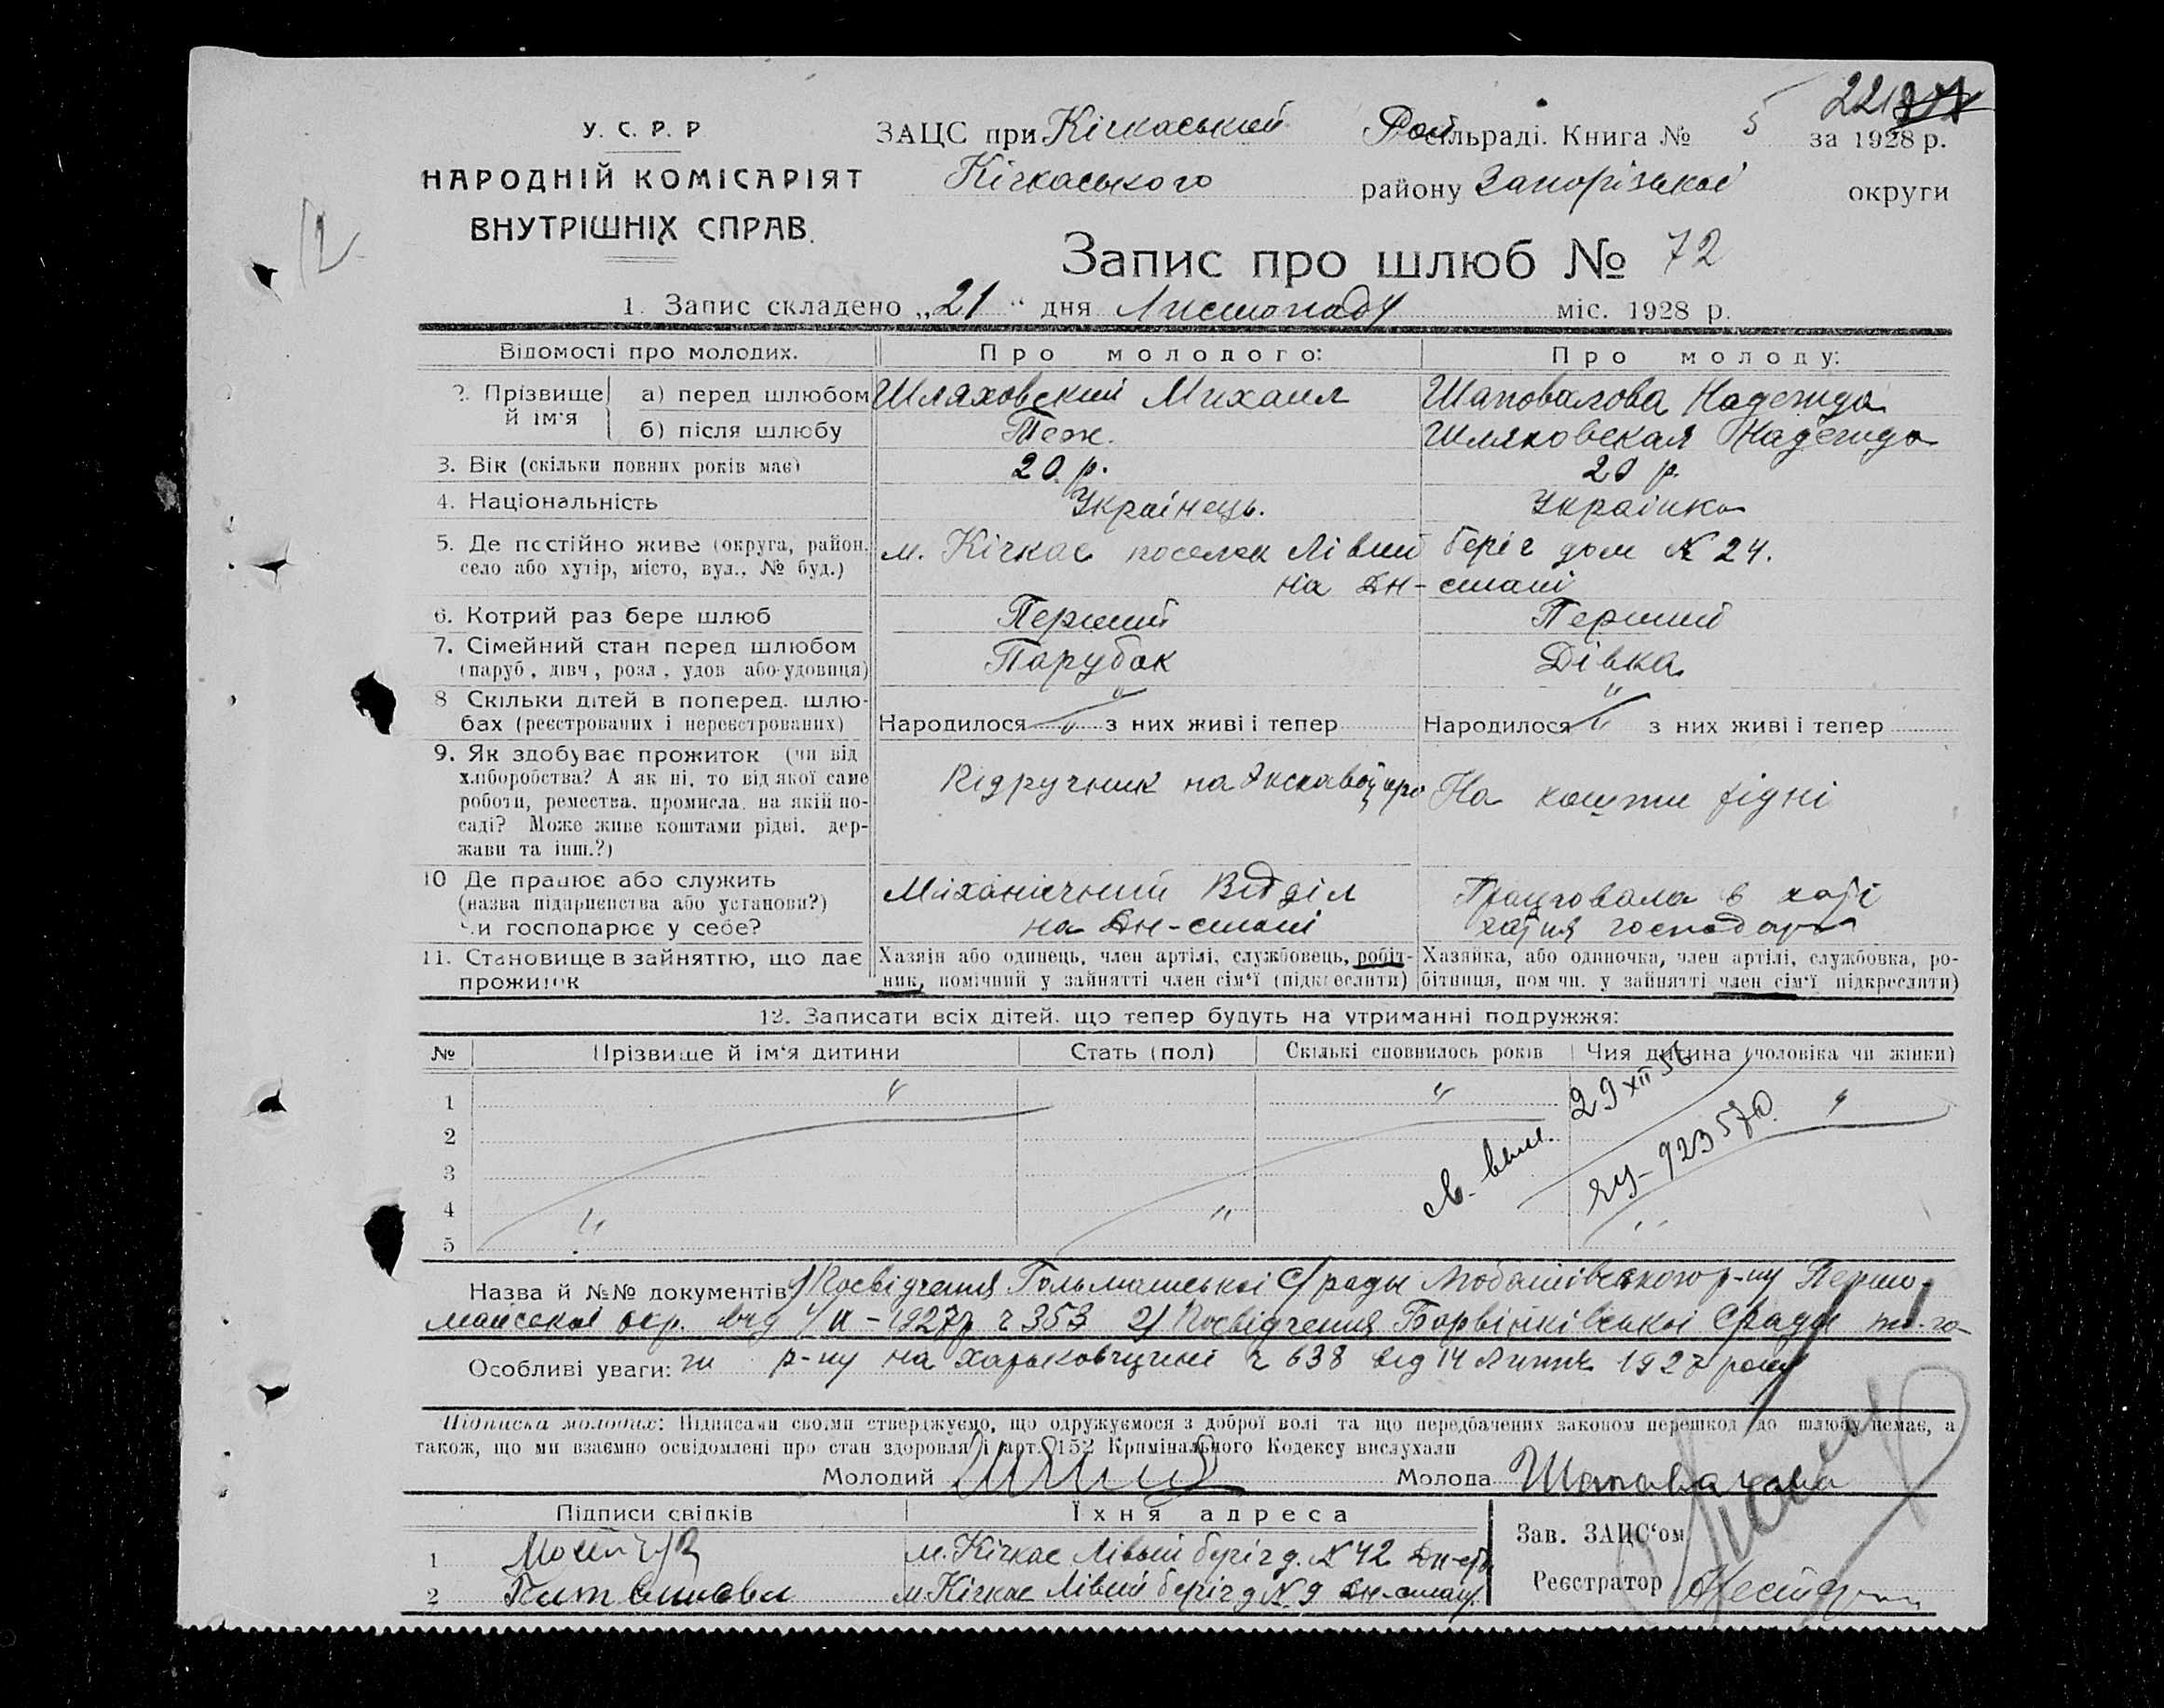 221
У. С. Р. Р
НАРОДНІЙ КОМІСАРІЯТ
ВНУТРІШНІХ СПРАВ.
ЗАЦС при Кічкаський Рай сільраді. Книга № 5 за 1928 р.
Кічкаського району Запорізької округи
Запис про шлюб № 72
1. Запис складено „21“ дня Листопаду міс. 1928 р.
Відомості про молодих. Про молодого: Про молоду:
2. Прізвище й ім'я а) перед шлюбом Шляховский Михаил Шаповалова Надежда
б) після шлюбу Теж. Шляховская Надежда
3. Вік (скільки повних років має) 20 р. 20 р.
4. Національність Українець. Українка
5. Де постійно живе (округа, район, село або хутір, місто, вул., № буд.) м. Кічкас поселок Лівий беріг дом № 24.
на Дн-стані
6. Котрий раз бере шлюб Перший Перший
7. Сімейний стан перед шлюбом Парубок Дівка
(паруб., дівч., розл., удов. або удовиця)
8 Скільки дітей в поперед. шлю-
бах (реєстрованих і нереєстрованих) Народилося " з них живі і тепер Народилося " з них живі і тепер
9. Як здобуває прожиток (чи від
хліборобства? А як ні, то від якої саме
роботи, ремества, промисла, на якій по-
саді? Може живе коштами рідні, дер-
жави та інш.?)
Підручник на На кошти рідні
10 Де працює або служить
(назва підприємства або установи?)
чи господарює у себе?
Міханічний Відділ
на Дн-стані
Працювала в хаті
11. Становище в зайняттю, що дає
прожиток
Хазяїн або одинець, член артілі, службовець, робіт-
ник, помічний у зайнятті член сім'ї (підкреслити)
Хазяйка, або одиночка, член артілі, службовка, ро-
бітниця, пом чн. у зайнятті член сім'ї підкреслити)
12. Записати всіх дітей, що тепер будуть на утриманні подружжя:
№ Прізвище й ім'я дитини Стать (пол) Скількі сповнилось років Чия дитина (чоловіка чи жінки)
1
2
3
4
5
св. выл. 29 XII 56
923570
Назва й №№ документів 1) Посвідчення с/ради р-ну Перво-
майської окр. від 1927р ч 353 2) Посвідчення Барвінківської с ради
Особливі уваги: р-ну на Харьковщині ч 638 від 14 Липня 1927 року
Підписка молодих: Підписами своїми стверджуємо, що одружуємося з доброї волі та що передбачених законом перешкод до шлюбу немає, а
також, що ми взаємно освідомлені про стан здоровля і арт. 152 Кримінального Кодексу вислухали
Молодий Молода Шаповалова
Підписи свідків Їхня адреса
1 м. Кічкас Лівый беріг д. № 42
2 м. Кічкас Лівий беріг д № 9
Зав. ЗАЦС'ом
Реєстратор